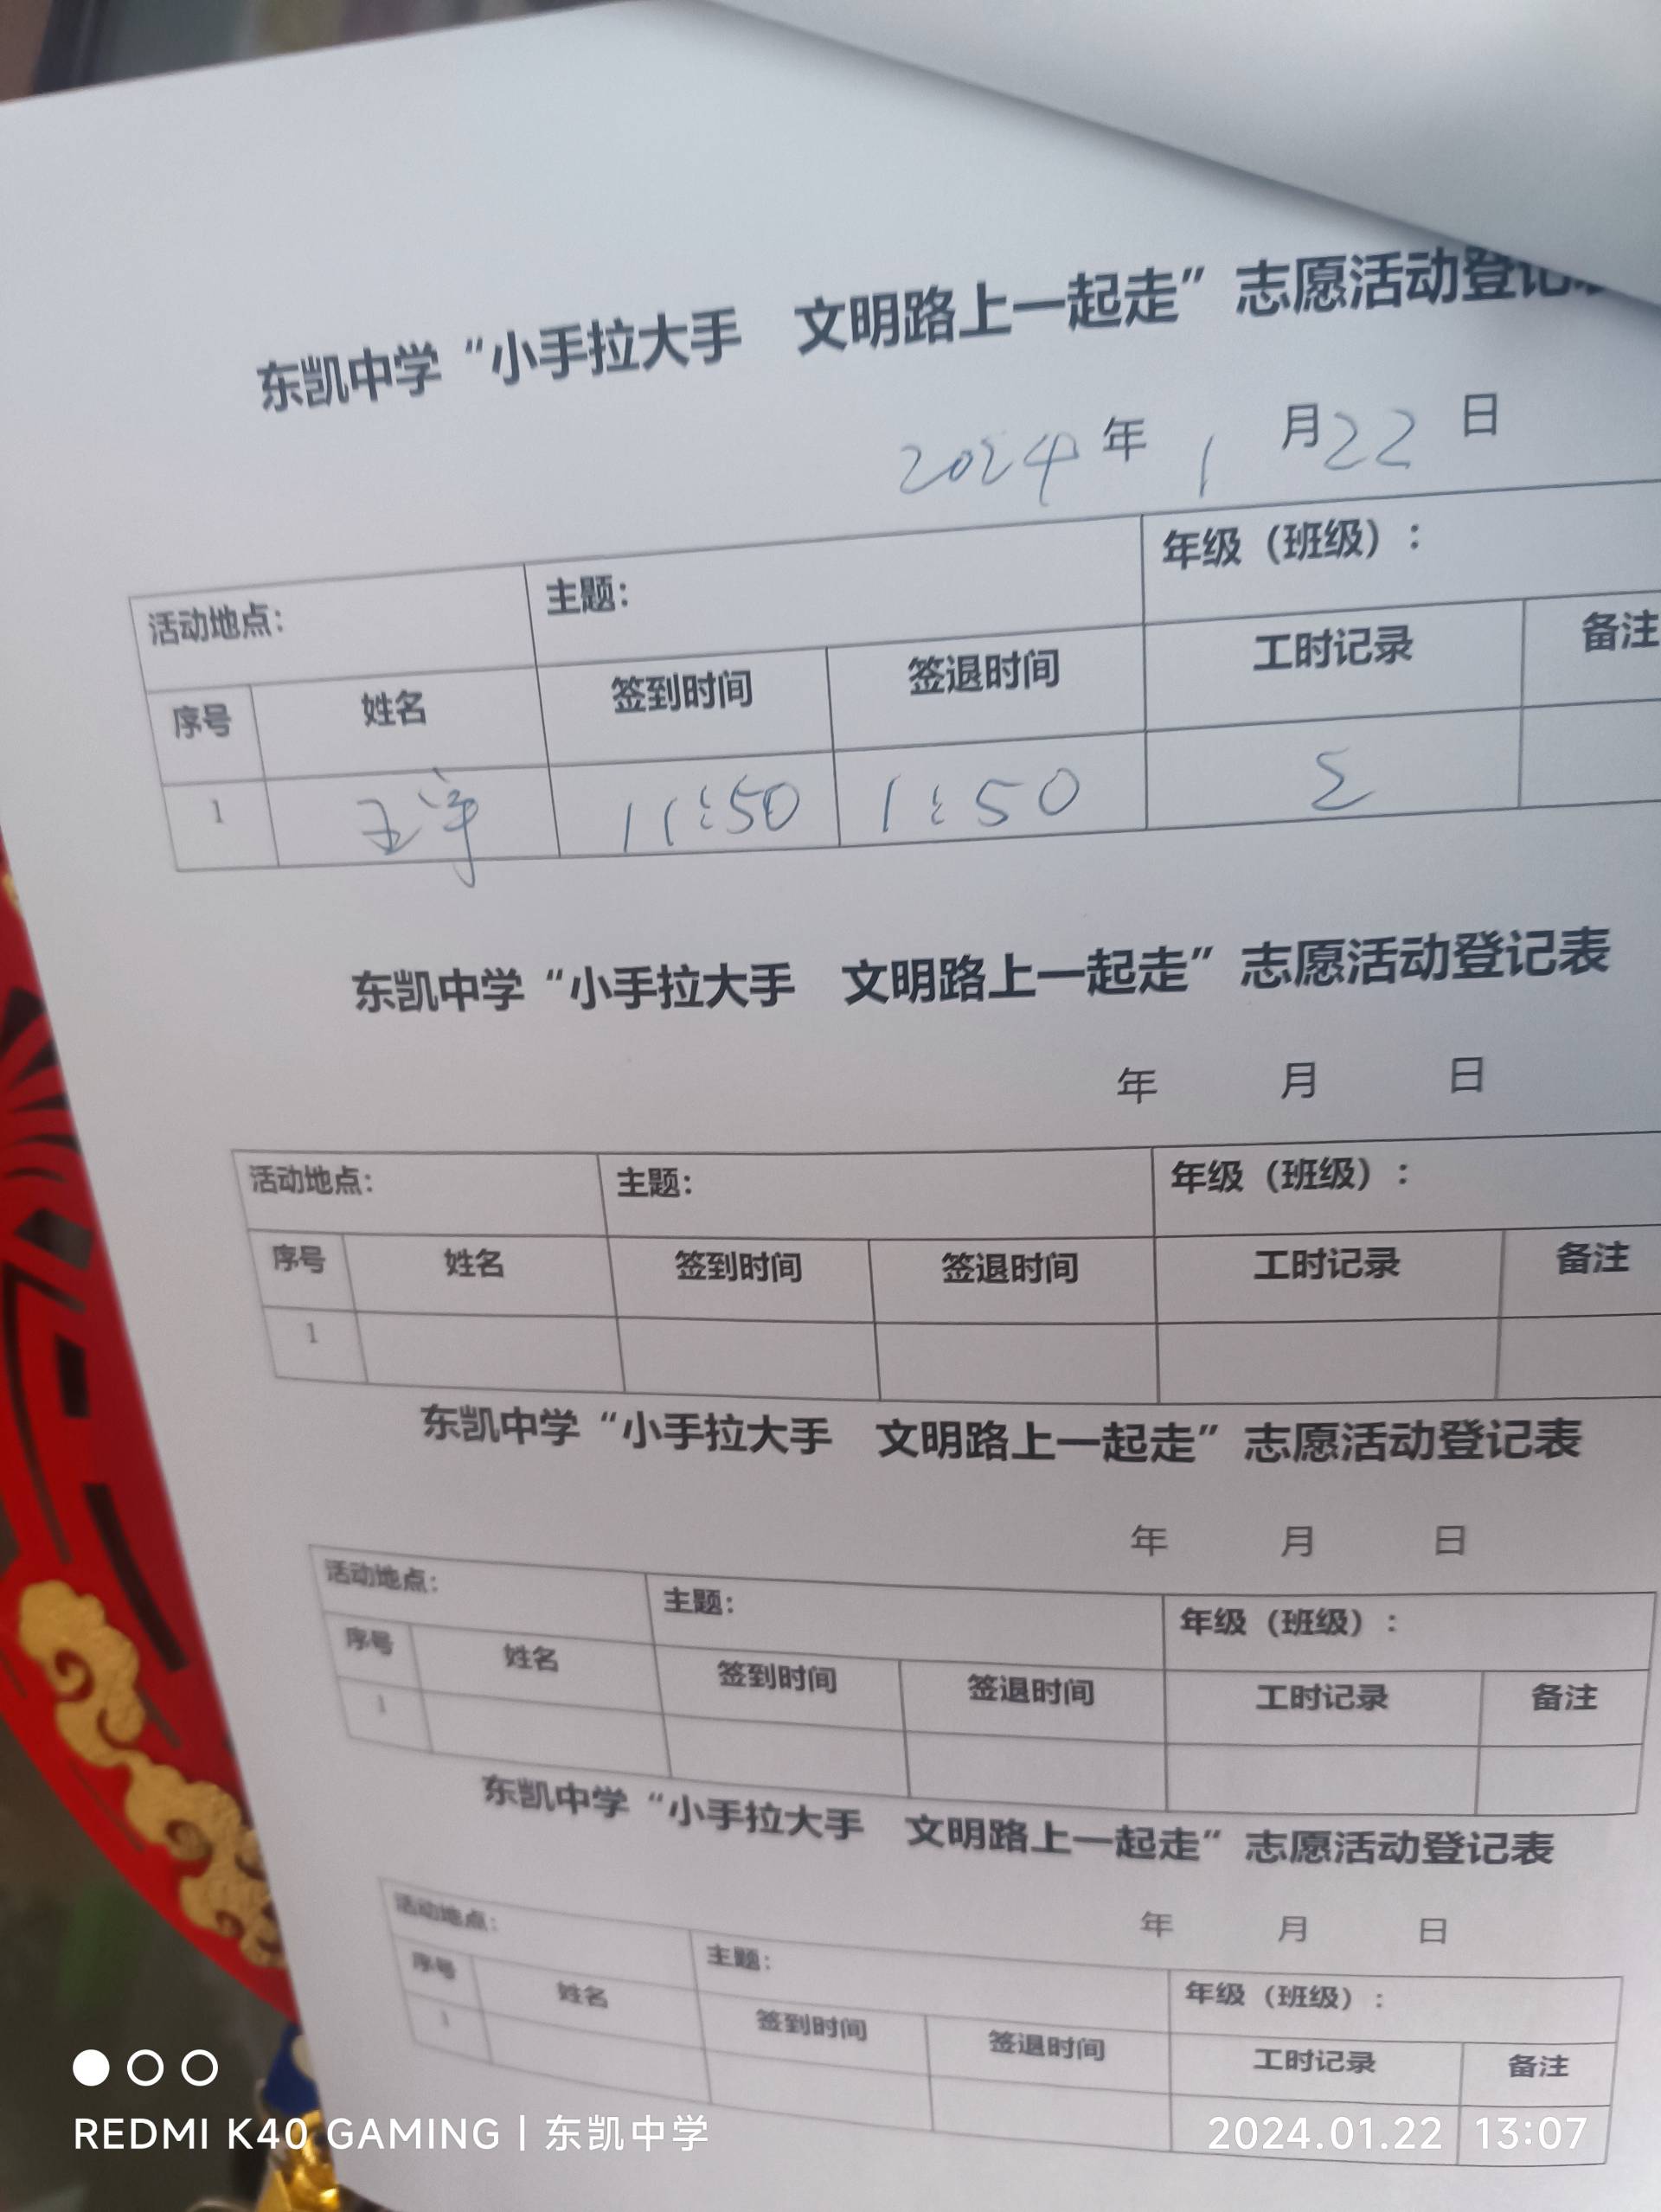 东凯中学“小手拉大手　文明路上一起走”志愿活动登记
2024年 1 月22 日
活动地点： 主题： 年级（班级）：
序号 姓名 签到时间 签退时间 工时记录 备注
1 11:50 1:50
东凯中学“小手拉大手　文明路上一起走”志愿活动登记表
年 月 日
活动地点： 主题： 年级（班级）：
序号 姓名 签到时间 签退时间 工时记录 备注
1
东凯中学“小手拉大手　文明路上一起走”志愿活动登记表
年 月 日
活动地点： 主题： 年级（班级）：
序号 姓名 签到时间 签退时间 工时记录 备注
1
东凯中学“小手拉大手　文明路上一起走”志愿活动登记表
年 月 日
活动地点： 主题： 年级（班级）：
序号 姓名 签到时间 签退时间 工时记录 备注
1
REDMI K40 GAMING | 东凯中学 2024.01.22 13:07